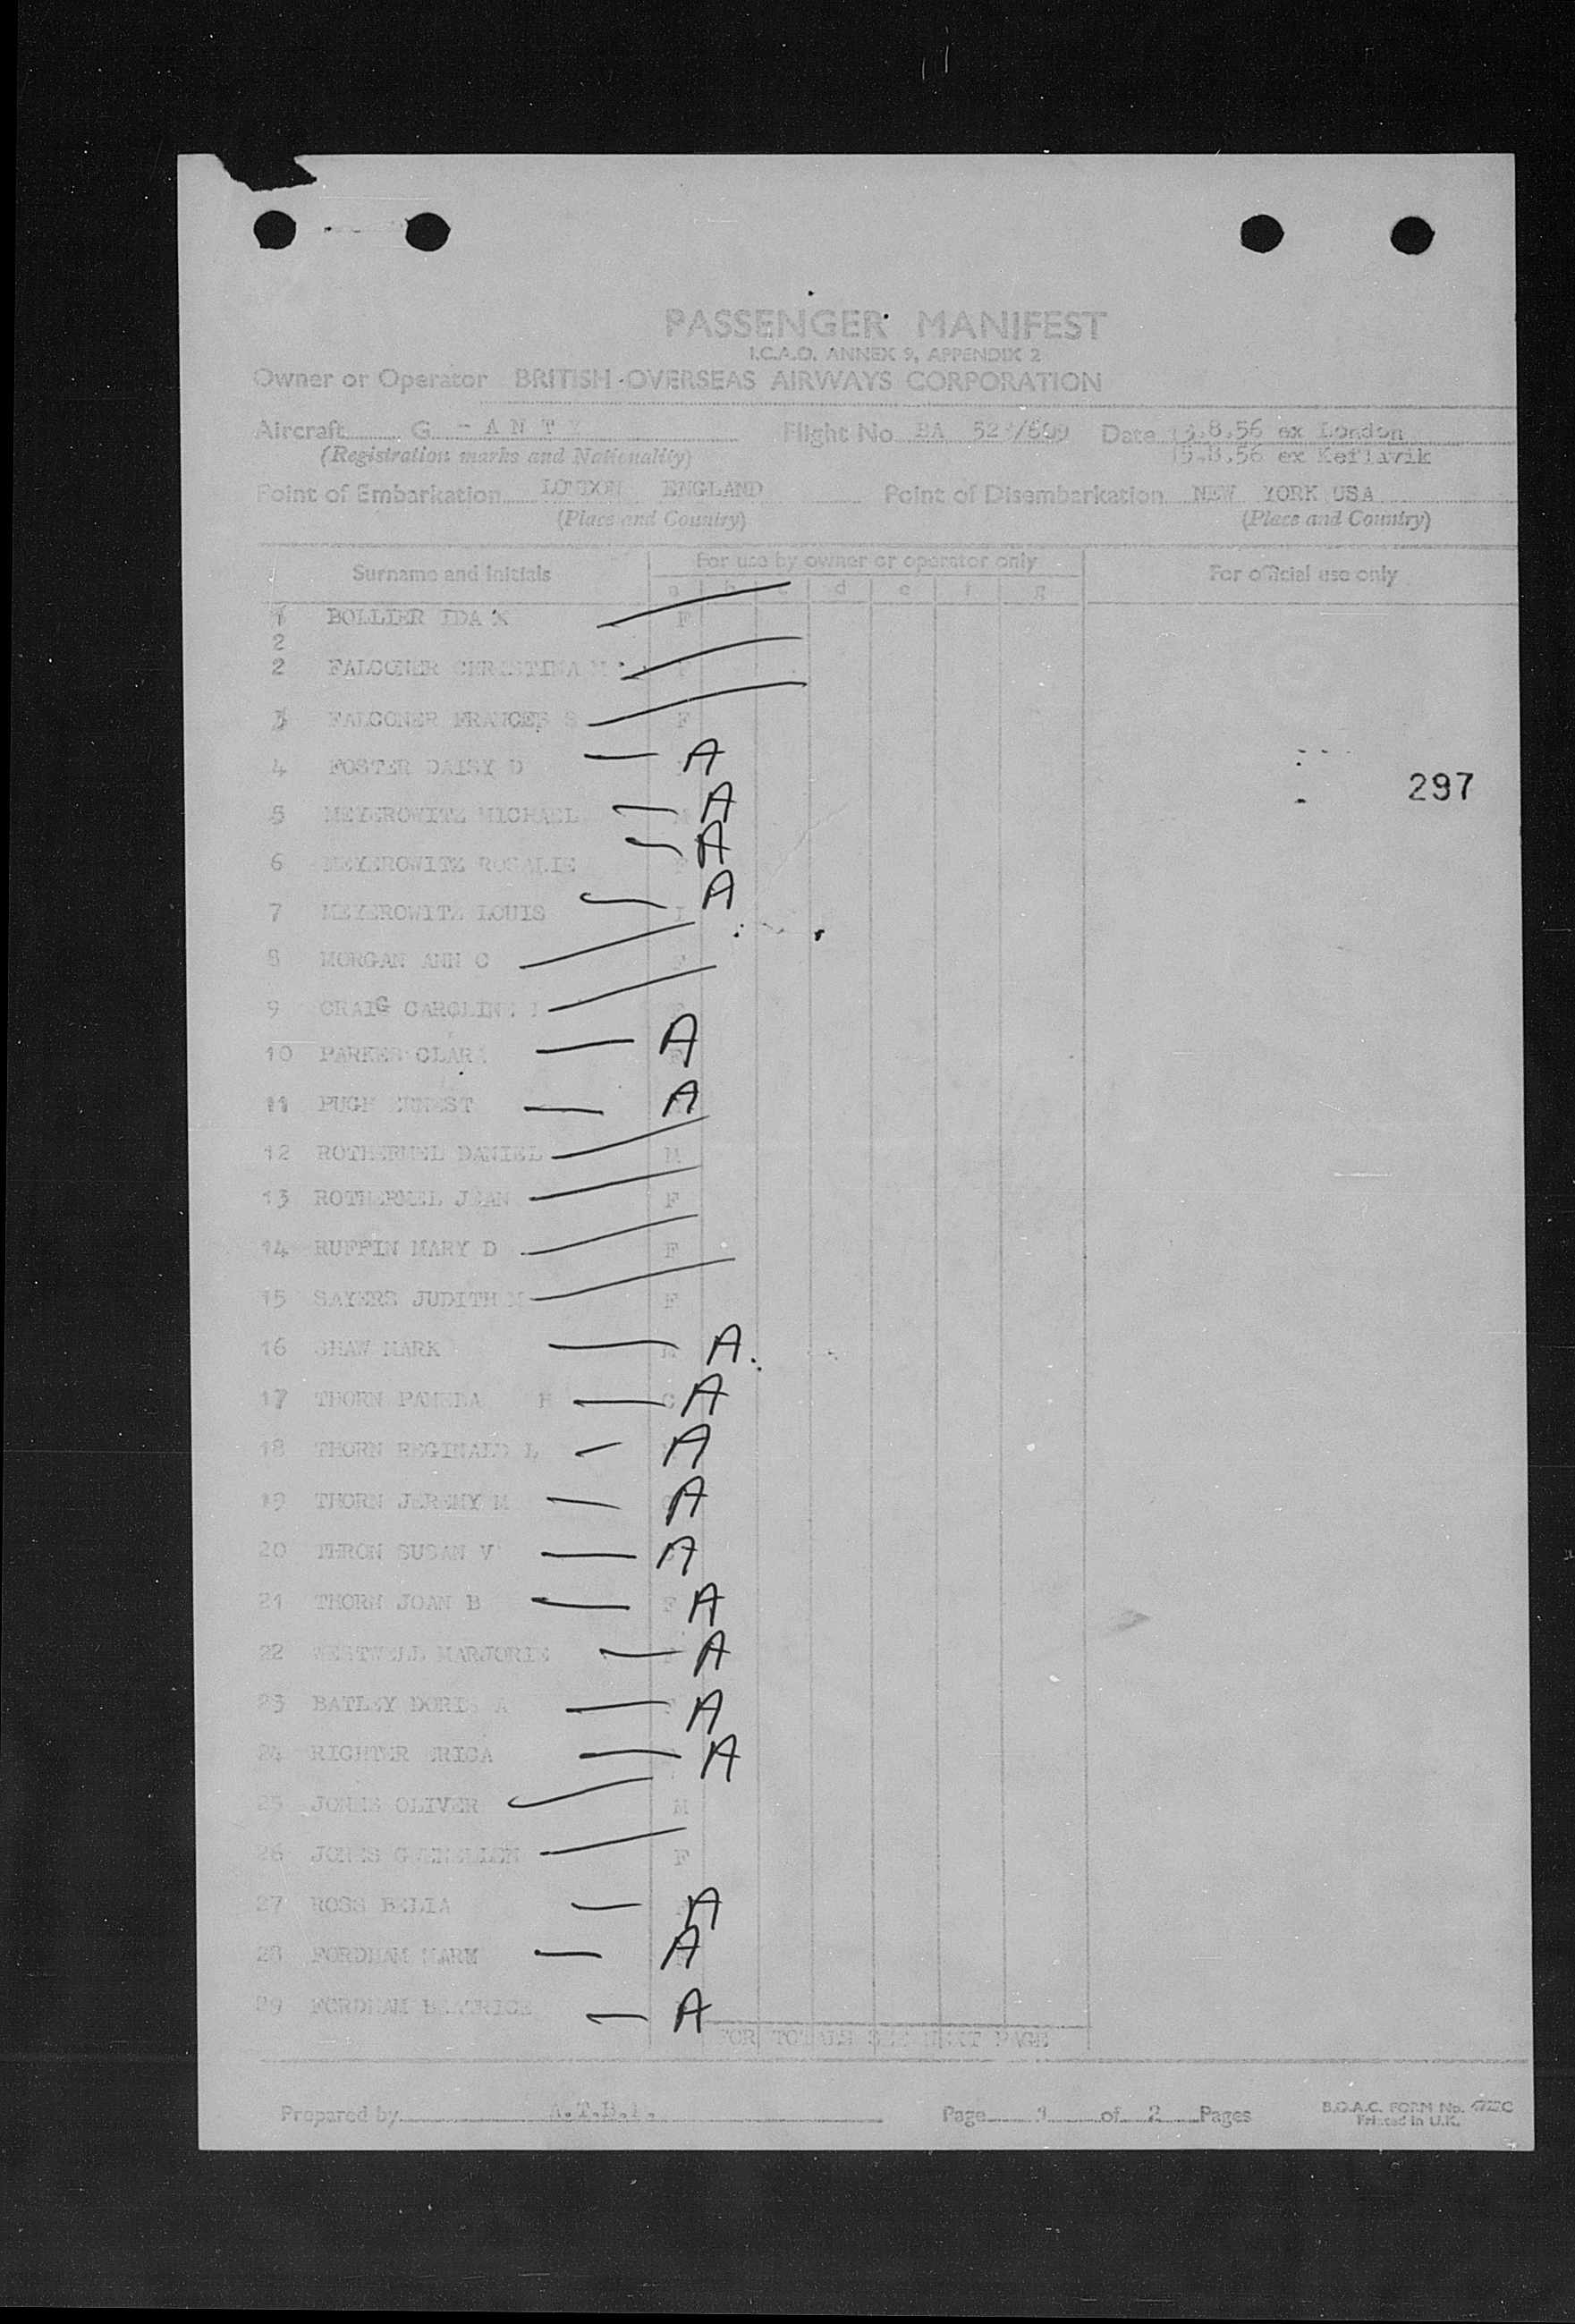 PASSENGER MANIFEST
I.C.A.O. ANNEX 9, APPENDIX 2
Owner or Operator BRITISH OVERSEAS AIRWAYS CORPORATION
Aircraft G - A N T Flight No. BA Date 8.56 ex London
(Registration marks and Nationality) 15.8.56 ex Keflavik
Point of Embarkation LONDON ENGLAND Point of Disembarkation NEW YORK USA
(Place and Country) (Place and Country)
Surname and Initials For use by owner or operator only For official use only
a b c d e f g
1 BOLLIER IDA F
2
2 FALCONER CHRISTINA M
3 FALCONER FRANCES S F
4 FOSTER DAISY D A
297
5 MEYEROWITZ MICHAEL M A
6 MEYEROWITZ ROSALIE F A
7 MEYEROWITZ LOUIS I A
8 MORGAN ANN C F
9 CRAIG CAROLINE
10 PARKER CLARA A
11 PUGH ERNEST A
12 ROTHERMEL DANIEL M
13 ROTHERMEL JEAN F
14 RUFFIN MARY D F
15 SAYERS JUDITH M F
16 SHAW MARK M A.
17 THORN PAMELA H C A
18 THORN REGINALD L A
19 THORN JEREMY M A
20 THRON SUSAN V A
21 THORN JOAN B F A
22 WESTWELL MARJORIE F A
23 BATLEY DORIS A A
24 RICHTER ERICA A
25 JONES OLIVER M
26 JONES GWENELLEN F
27 ROSS BELIA A
28 FORDHAM MARK A
29 FORDHAM BEATRICE A
FOR TOTALS SEE NEXT PAGE
Prepared by A.T.B. Page 1 of 2 Pages
B.O.A.C. FORM No.
Printed in U.K.